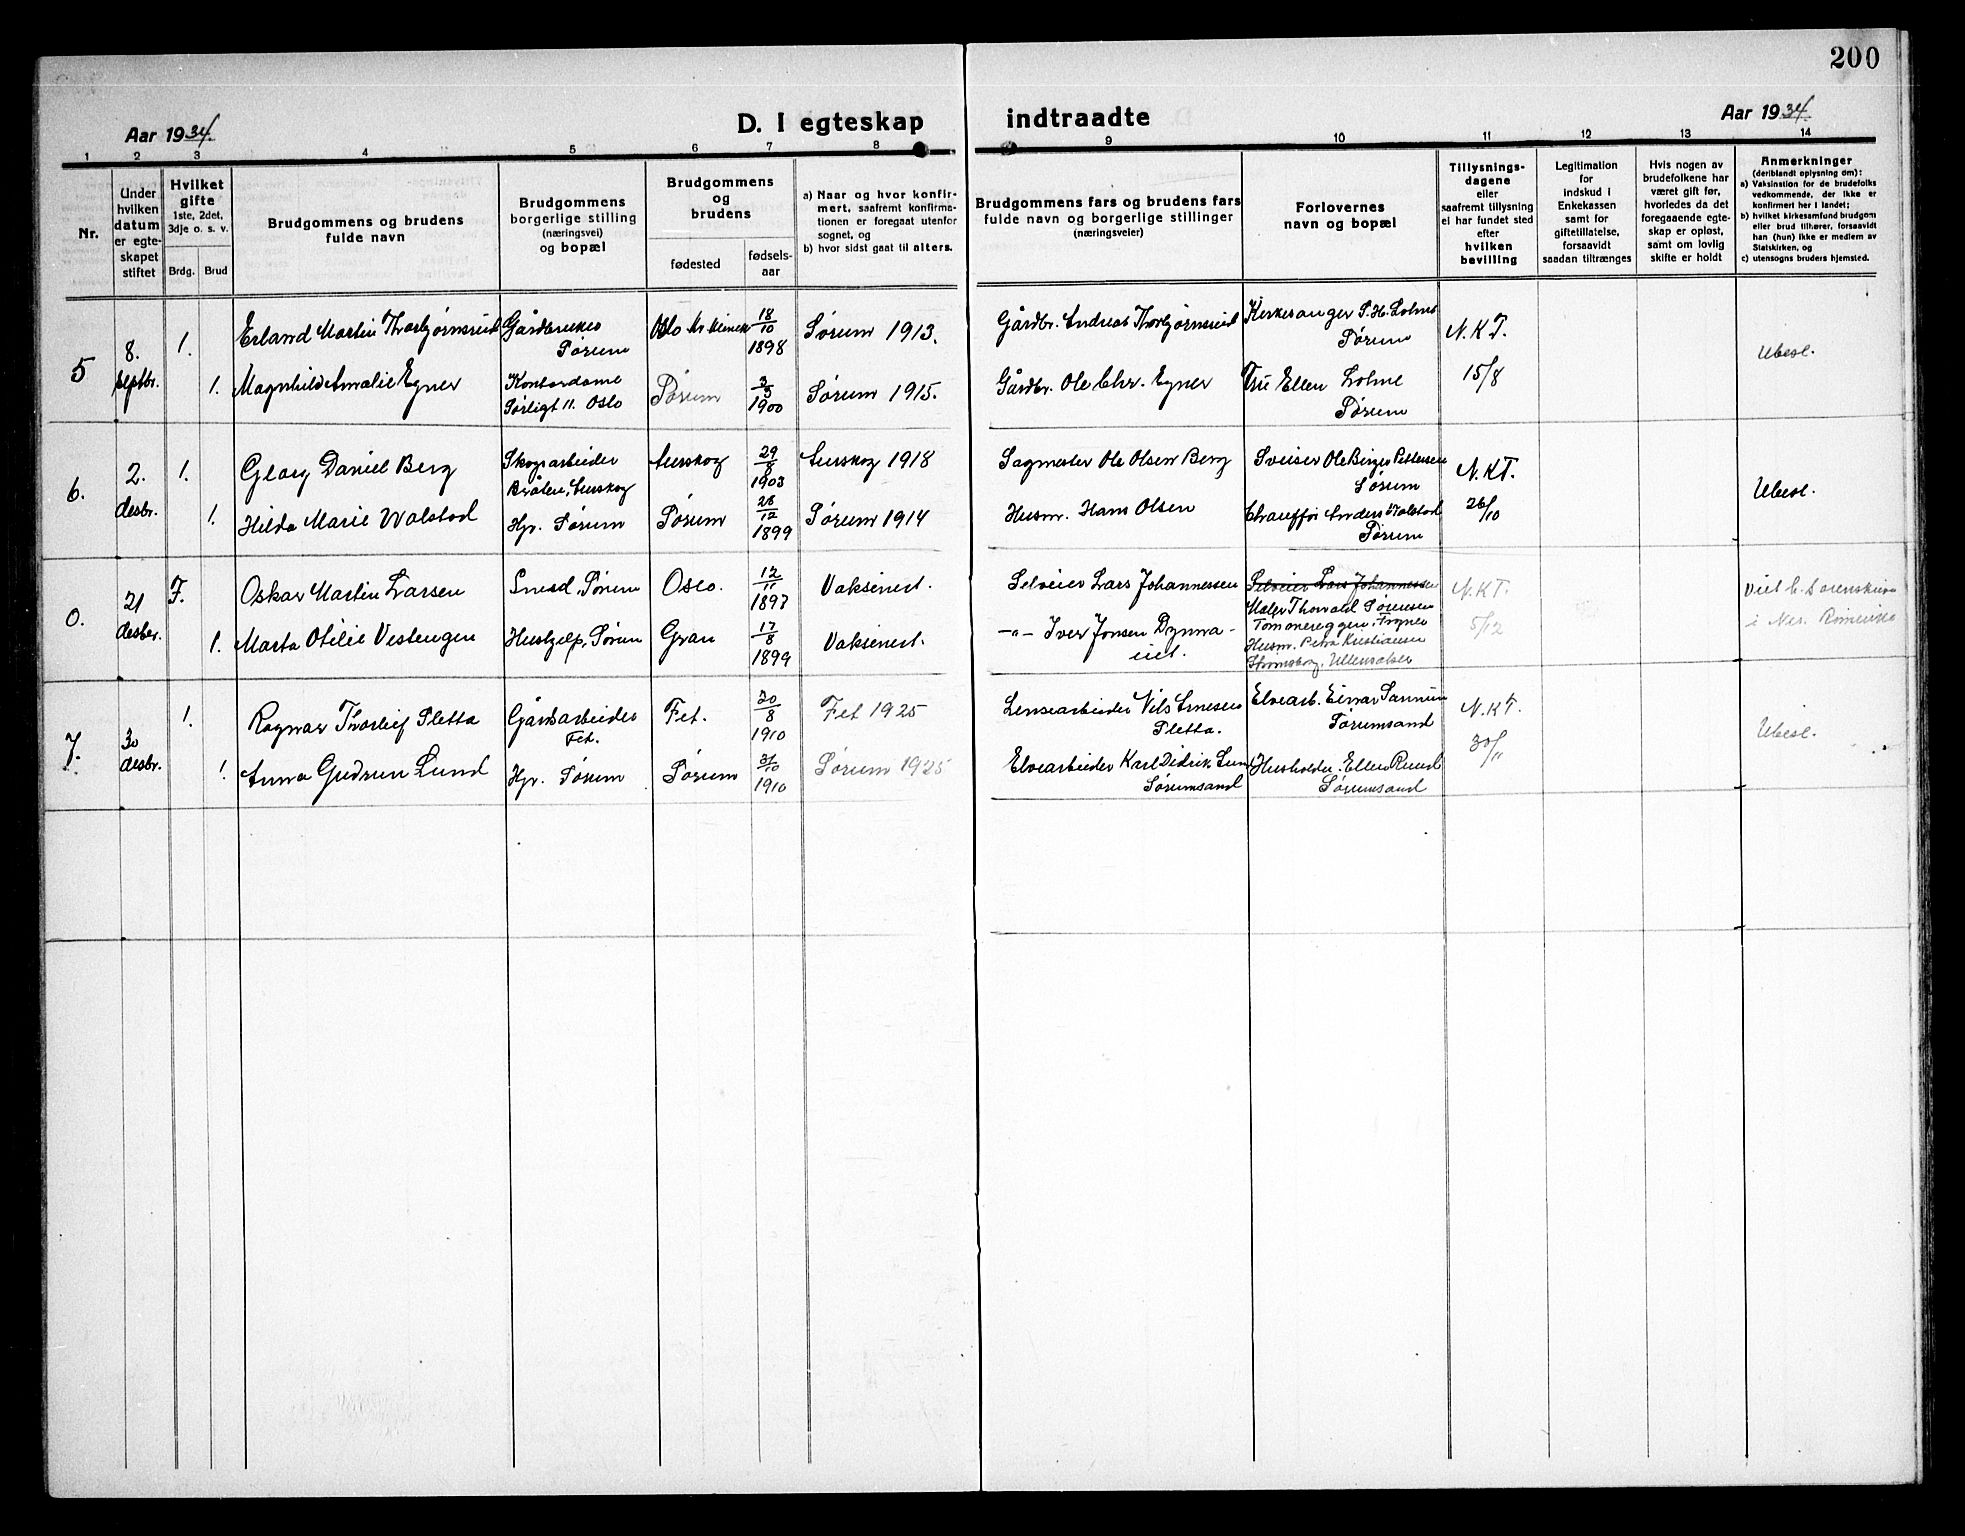 200
Aar 1934.
D. I egteskap indtraadte
Aar 1934.
1 2 3 4 5 6 7 8 9 10 11 12 13 14
Nr.
Under
hvilken
datum
er egte-
skapet
stiftet
Hvilket
gifte
1ste, 2det,
3dje o. s. v.
Brdg. Brud
Brudgommens og brudens
fulde navn
Brudgommens
borgerlige stilling
(næringsvei)
og bopæl
Brudgommens
og
brudens
fødested
fødsels-
aar
a) Naar og hvor konfir-
mert, saafremt konfirma-
tionen er foregaat utenfor
sognet, og
b) hvor sidst gaat til alters.
Brudgommens fars og brudens fars
fulde navn og borgerlige stillinger
(næringsveier)
Forlovernes
navn og bopæl
Tillysnings-
dagene
eller
saafremt tillysning
ei har fundet sted
efter
hvilken
bevilling
Legitimation
for
indskud i
Enkekassen
samt for
giftetillatelse,
forsaavidt
saadan tiltrænges
Hvis nogen av
brudefolkene har
været gift før,
hvorledes da det
foregaaende egte-
skap er opløst,
samt om lovlig
skifte er holdt
Anmerkninger
(deriblandt oplysning om):
a) Vaksination for de brudefolks
vedkommende, der ikke er
konfirmert her i landet;
b) hvilket kirkesamfund brudgom
eller brud tilhører, forsaavidt
han (hun) ikke er medlem av
Statskirken, og
c) utensogns bruders hjemsted.
5
8.
septbr.
1.
Erland Martin Thorbjørnsrud
Gårdbruker
Sørum
Oslo
18/10
1898
Sørum 1913.
Gårdbr. Andreas Thorbjørnsrud
Kirkesanger S. H. Lolme
Sørum
N.K.T.
15/8
Ubesl.
1.
Magnhild Amalie Egner
Kontordame
Sørligt 11. Oslo
Sørum
3/3
1900
Sørum 1915.
Gårdbr. Ole Chr. Egner
Fru Ellen Lolme
Sørum
6.
2.
desbr.
1.
Georg Daniel Berg
Skogsarbeider
Bråten, Aurskog
Aurskog
29/8
1903
Aurskog 1918
Sagmester Ole Olsen Berg
Sveiser Ole Birger Pettersen
Sørum
N.K.T.
26/10
Ubesl.
1.
Hilda Marie Walstad
Hp. Sørum
Sørum
28/12
1899
Sørum 1914
Husm. Hans Olsen
Chauffør Anders Walstad
Sørum
0.
21
desbr.
F.
Oskar Martin Larsen
Smed, Sørum
Oslo.
12/11
1897
Vaksinert.
Selveier Lars Johannessen
Selveier Lars Johannessen
Maler Thorvald Sørensen
Tømonereggen, Frogner
N.K.T.
5/12
Viet b. Sorenskriver
i Ner. Romerike
1.
Marta Otilie Vestengen
Hushjelp, Sørum
Gran
17/8
1899
Vaksinert.
-"- Iver Jonsen Dynna-
eiet.
Husm. Petra Kristiansen
Strømskog, Ullensaker
7.
30
desbr.
1.
Ragnar Thorleif Sletta
Gårdsarbeider
Fet.
Fet.
20/8
1910
Fet 1925
Lensearbeider Nils Arnesen
Sletta.
Elvearb. Einar Sannum
Sørumsand
N.K.T.
30/11
Ubesl.
1.
Anna Gudrun Lund
Hp. Sørum
Sørum
31/10
1910
Sørum 1925
Elvearbeider Karl Didrik Lund
Sørumsand
Husholder. Ellen Ruud
Sørumsand